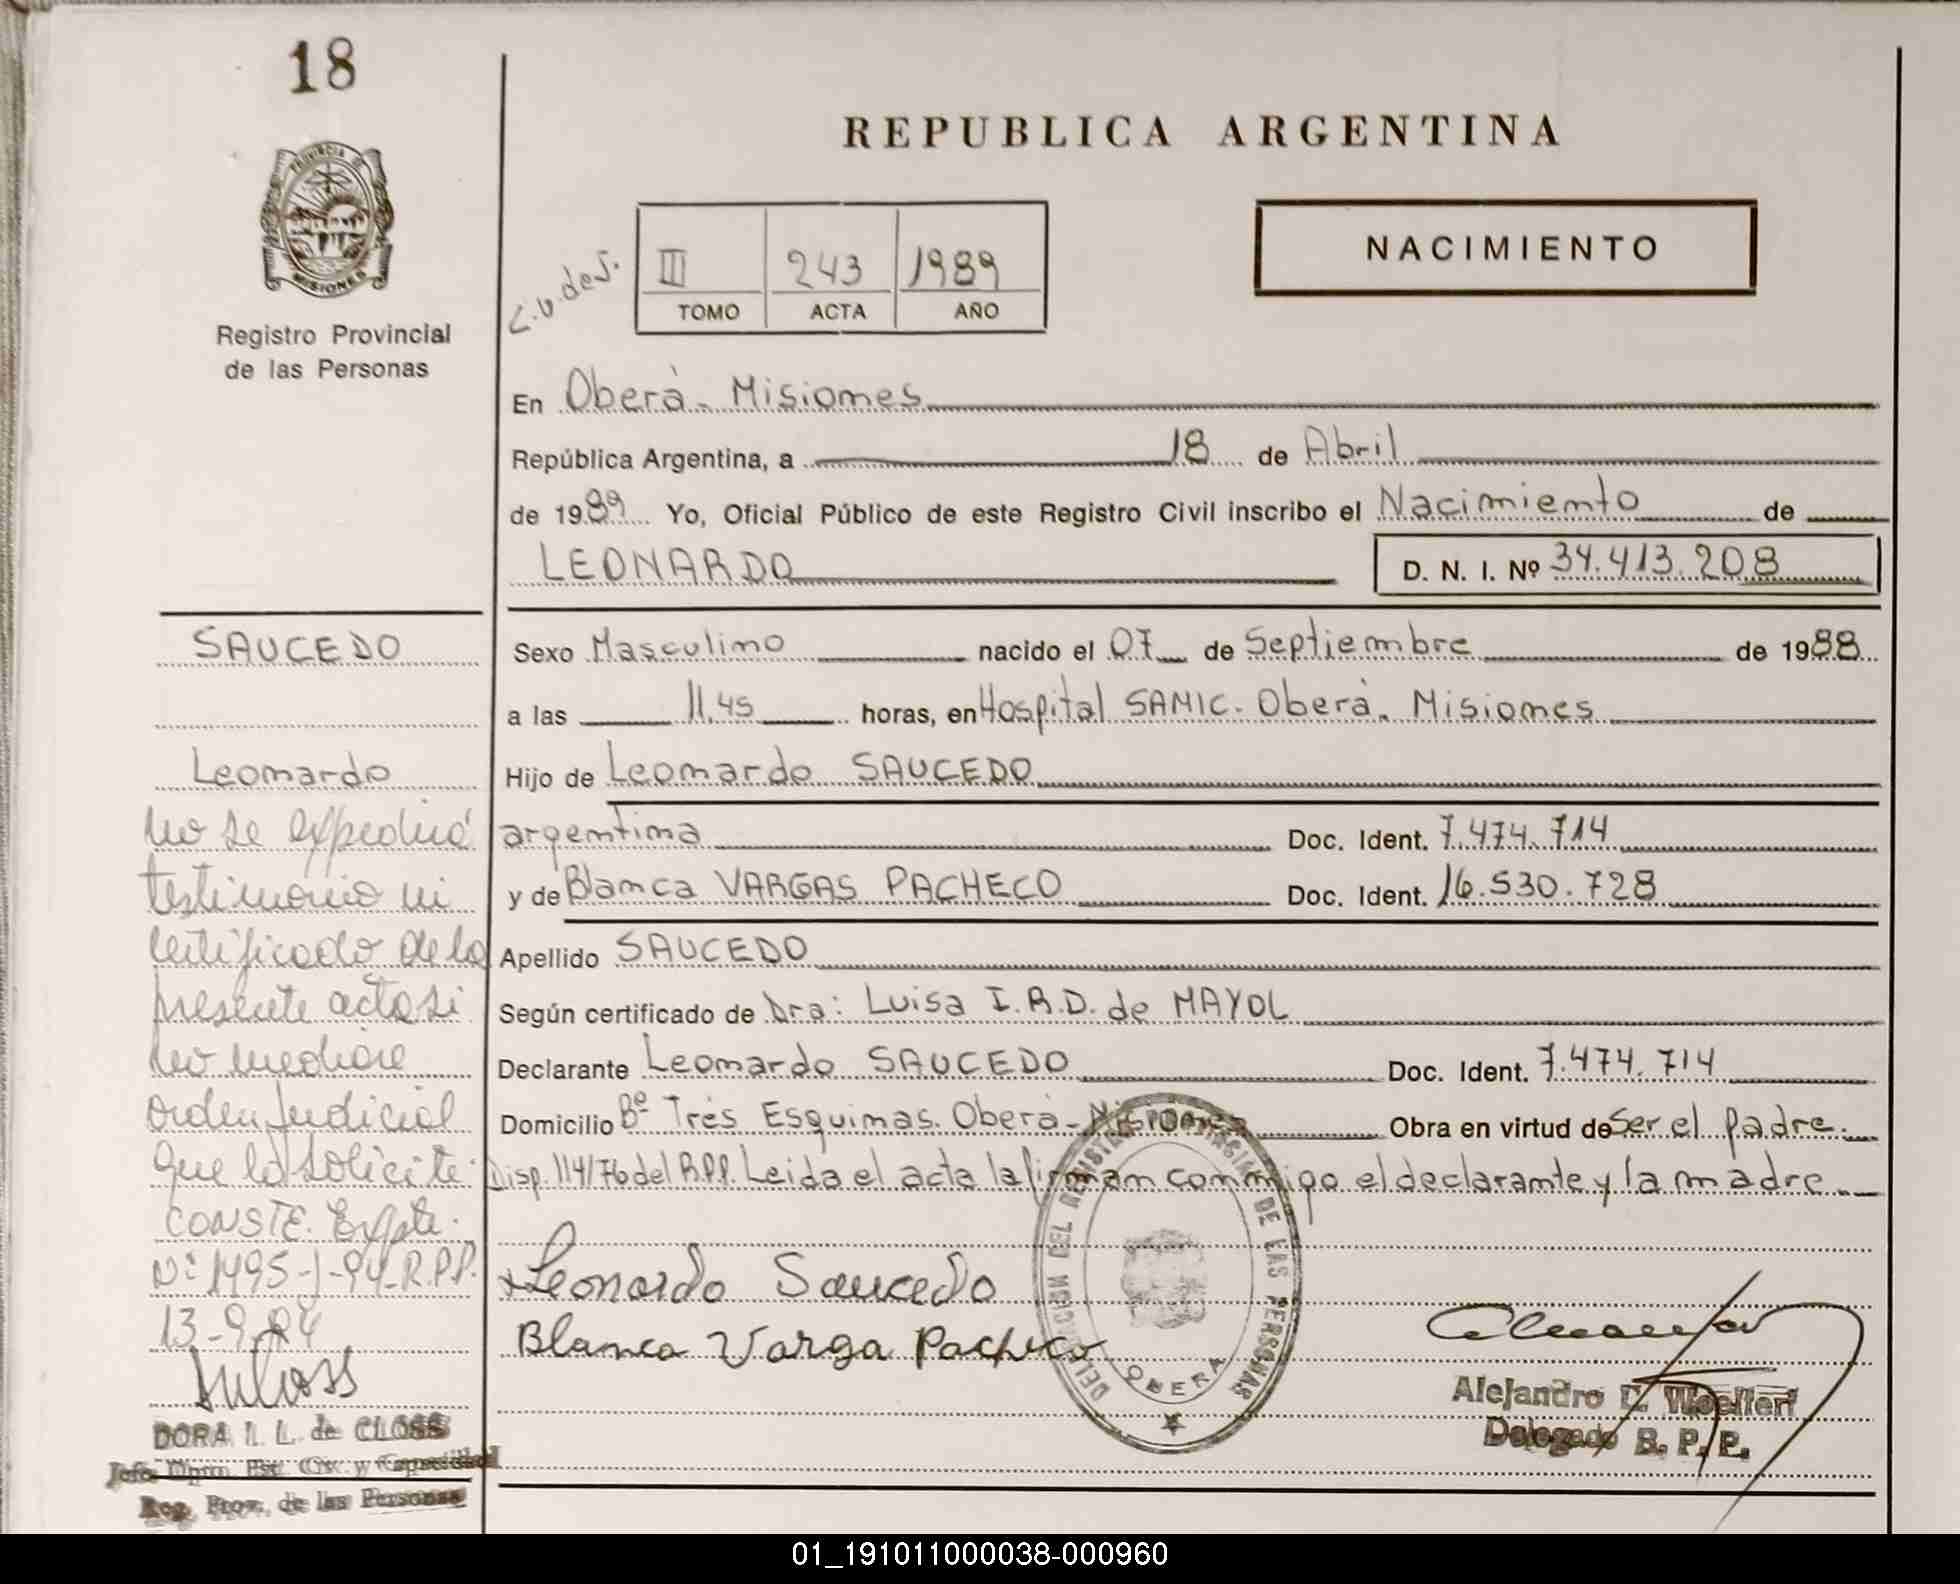 18
REPUBLICA ARGENTINA
PROVINCIA DE
MISIONES
Registro Provincial
de las Personas
III 243 1989
TOMO ACTA AÑO
NACIMIENTO
En Oberá - Misiones
República Argentina, a 18 de Abril
de 1989 Yo, Oficial Público de este Registro Civil inscribo el Nacimiento de
LEONARDO D. N. I. Nº 34.413.208
SAUCEDO
Leonardo
No se expedirá
testimonio ni
certificado de la
presente acta si
no mediare
orden Judicial
que lo solicite.
CONSTE. Expte.
Nº 1495-J-94-R.P.P.
13-9-94
DORA I. L. de CLOSS
Jefe Dpto. Est. Civ. y Capacidad
Reg. Prov. de las Personas
Sexo Masculino nacido el 07 de Septiembre de 1988
a las 11,45 horas, en Hospital SAMIC. Oberá. Misiones
Hijo de Leonardo SAUCEDO
argentina Doc. Ident. 7.474.714
y de Blanca VARGAS PACHECO Doc. Ident. 16.530.728
Apellido SAUCEDO
Según certificado de Dra: Luisa I.R.D. de MAYOL
Declarante Leonardo SAUCEDO Doc. Ident. 7.474.714
Domicilio Bº Tres Esquinas. Oberá - Misiones Obra en virtud de Ser el padre.
Disp. 114/76 del R.P.P. Leida el acta la firman conmigo el declarante y la madre.
Leonardo Saucedo
Blanca Varga Pacheco
DE LAS PERSONAS
OBERA
Alejandro E. Woelfert
Delegado R. P. P.
01_191011000038-000960